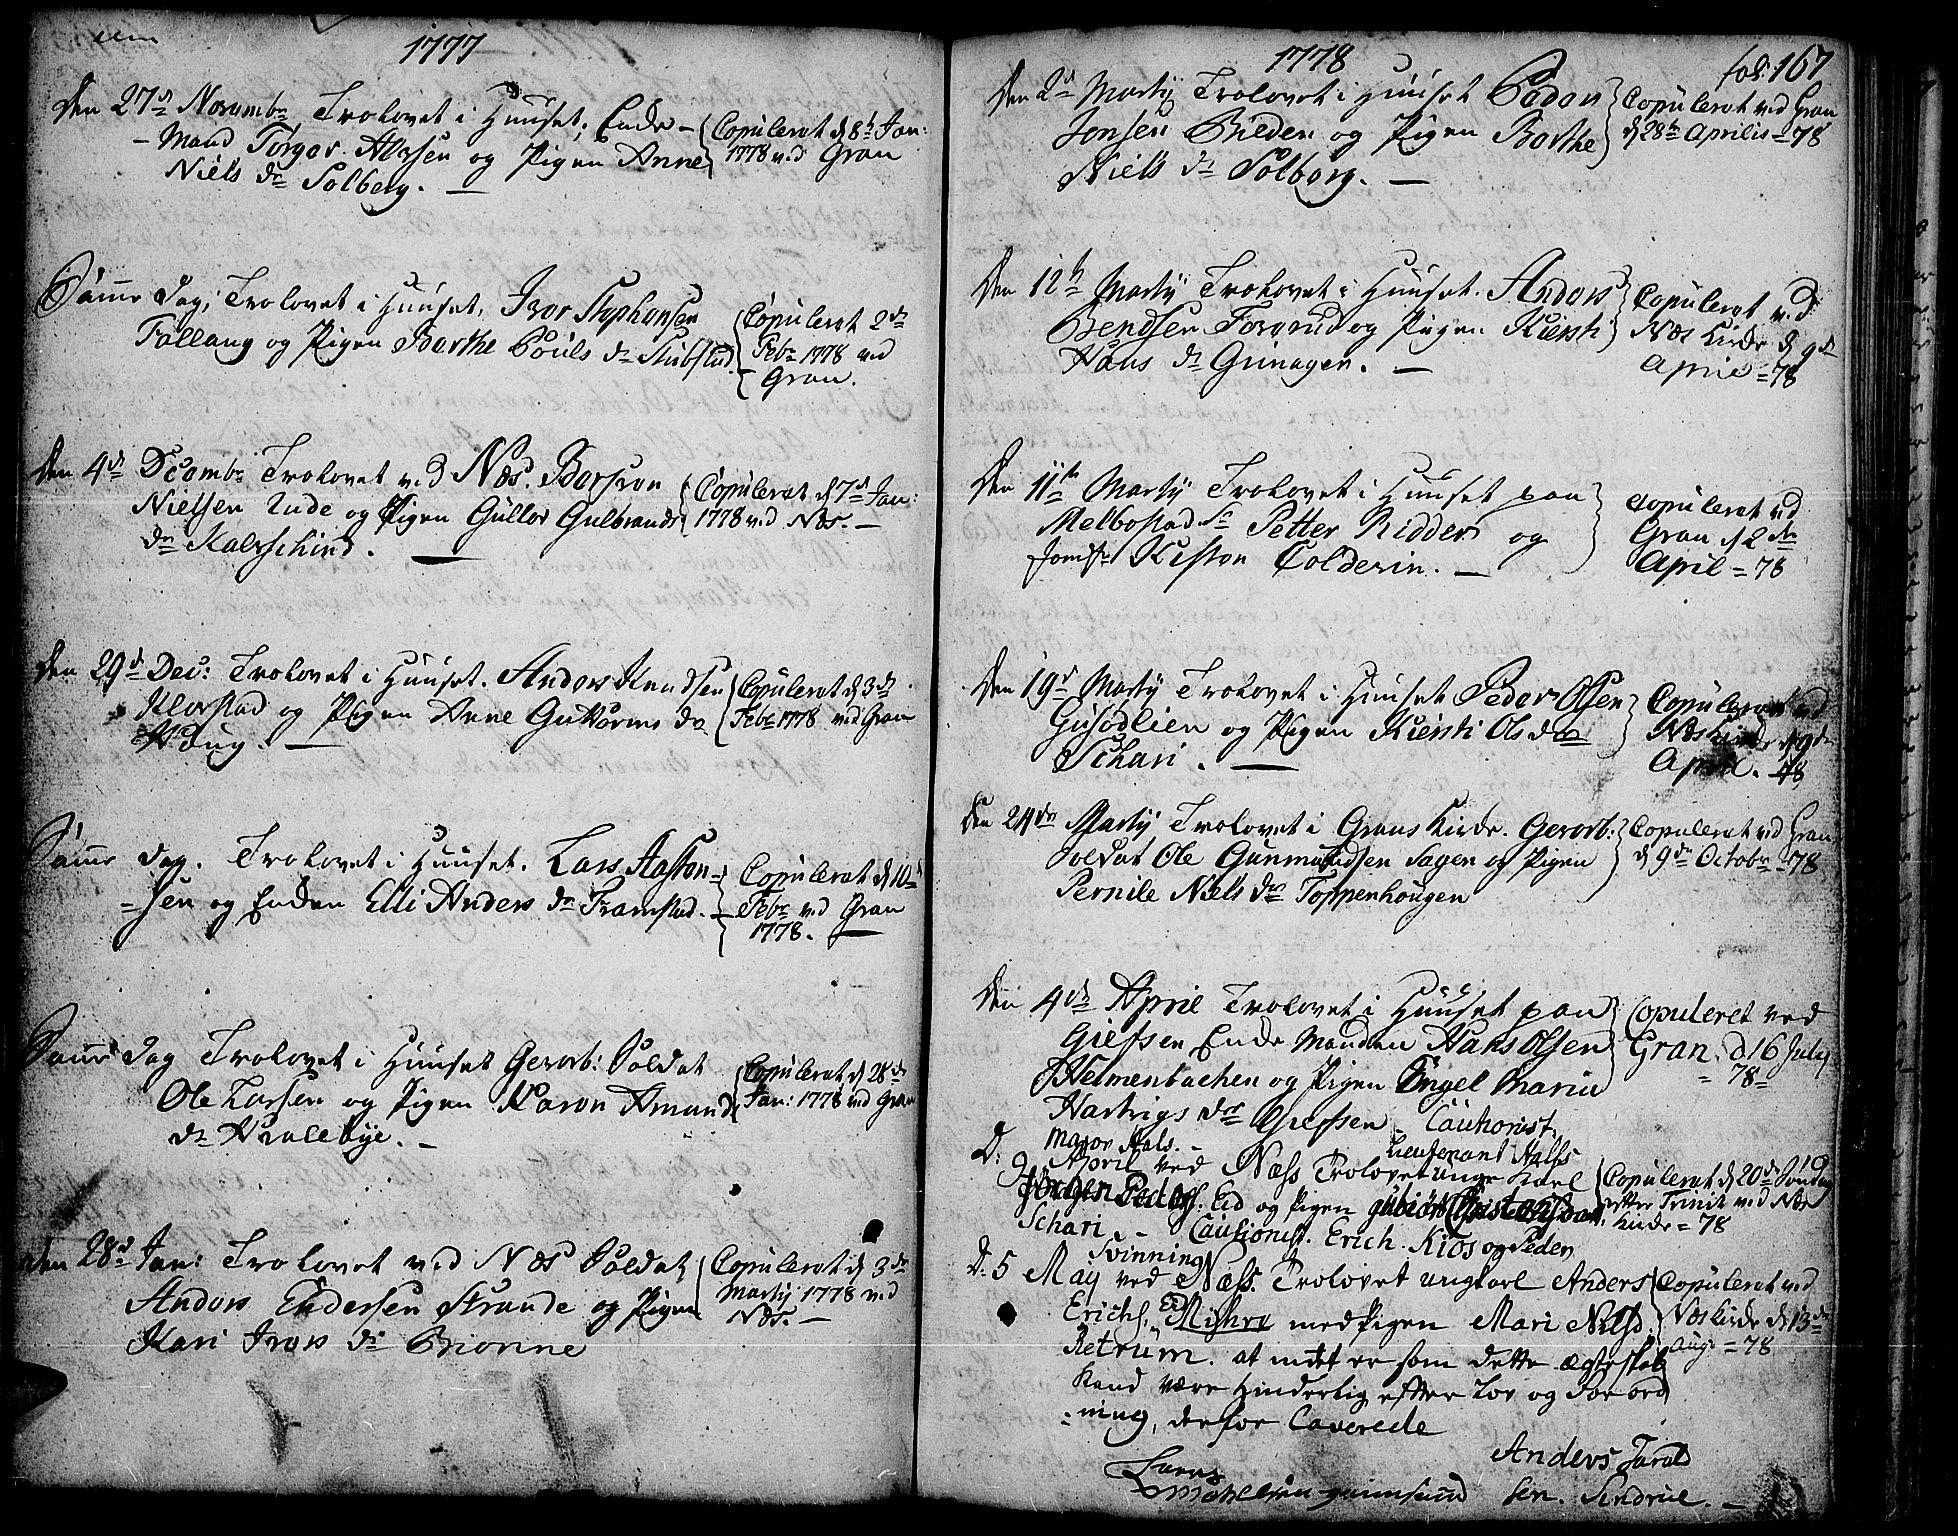 1777
Den 27d Novembr Trolovet i Huuset, Enke-
-Mand Torger Alersen og Pigen Anne
Niels dr Solberg. —
Copuleret d 8t Jan:
1778 ved Gran
Samme Dag, Trolovet i Huuset, Iver Stephensen
Tallang og Pigen Berthe Pouls dr Stubstad.
Copuleret 2dn
Febr 1778 ved
Gran.
Den 4dn Decembr Trolovet ved Næs.
Nielsen Lude og Pigen Gullov Gulbrands
dr Kalvschind. —
Copuleret d 7d Jan:
1778 ved Næs. —
Den 29d Dec: Trolovet i Huuset. Anders Knudsen
Alvstad og Pigen Anne Guttorms dr
Houg. —
Copuleret d 3dn
Febr 1778 ved Gran
Samme dag. Trolovet i Huuset. Lars Aasten=
=sen og Enken Elli Anders dr Framstad. —
Copuleret d 10d
Febr ved Gran
1778. —
Samme dag Trolovet i Huuset Geworb: Soldat
Ole Larsen og Pigen Karen Amund
dr Hvalebye. —
Copuleret d 28dn
Jan: 1778 ved Gran
den 28d Jan: Trolovet ved Næs Soldat
Anders Endersen Strande og Pigen
Kari Ivers dr Brionne
Copuleret d 3dn
Martij 1778 ved
Næs. —
1778
fol: 167
Den 2d Martij Trolovet i Huuset Peder
Jensen Bilden og Pigen Berthe
Niels dr Solberg. —
Copuleret ved Gran
d 28t Aprilis = 78
Den 12t Martij Trolovet i Huuset. Anders
Bendsen Forgrud og Pigen Kiersti
Hans dr Grinager. —
Copuleret ved
Næs Kirke d 9dn
April = 78
Den 11te Martij Trolovet i Huuset paa
Melbostad Sr Petter Ridder og
Jomfr Kisten Colderin. —
Copuleret ved
Gran d 2dn
April = 78
Den 19d Martij Trolovet i Huuset Peder Olsen
Gisødlien og Pigen Kiersti Ols dr
Schari. —
Copuleret ved
Næs Kirke d 9dn
April. 78
Den 24dn Martij Trolovet i Grans Kirke. Geworb:
Soldat Ole Gunmundsen Sagen og Pigen
Pernile Niels dr Toppenhougen
Copuleret ved Gran
d 9dn Octobr = 78
Den 4dn April Trolovet i Huuset paa
Giefsen Enke Manden Hans Olsen
Helmenbachen og Pigen Engel Maria
Hartvigs dr Giefsen - Cautionist.
Major Hals. - Lieutenant Halss
Copuleret ved
Gran d 16 July
= 78 =
D: 9 April ved Næss Trolovet unge Karl
Pederss. Eid og Pigen
Schari. - Cautionist. Erich Kios og Peder
Svinning
Copuleret d 20de Søndag
efter Trinit ved Næs
Kirke = 78
D. 5 May ved Næss. Trolovet ungkarl Anders
Erichs. Eid med Pigen Mari Nilsd.
Retrum. at intet er som dette ægteskab
kand være hinderlig efter Lov og Forord
=ning, derfor Caverede
Copuleret ved
Næs Kirke d 13dn
Aug: = 78
Anders Tarald
sen. Sindrue. —
Lars